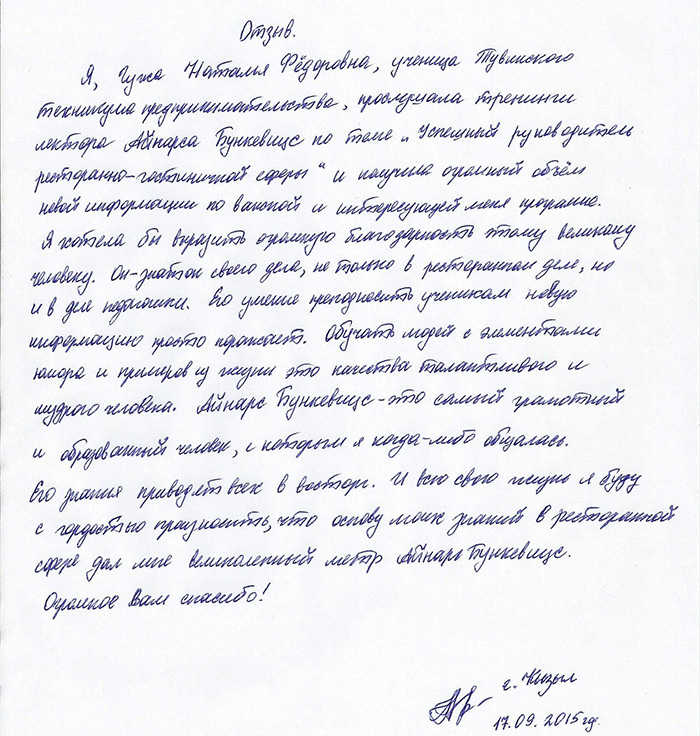 Отзыв.
Я, Гужа Наталья Фёдоровна, ученица Тувинского
техникума предпринимательства, прослушала тренинги
лектора Айнарса Бункевицс по теме „Успешный руководитель
ресторанно-гостиничной сферы“ и получила огромный объём
новой информации по важной и интересующей меня программе.
Я хотела бы выразить огромную благодарность этому великому
человеку. Он-знаток своего дела, не только в ресторанном деле, но
и в деле педагогики. Его умение преподносить ученикам новую
информацию просто поражает. Обучать людей с элементами
юмора и примеров из жизни это качества талантливого и
мудрого человека. Айнарс Бункевицс-это самый грамотный
и образованный человек, с которым я когда-либо общалась.
Его знания приводят всех в восторг. И всю свою жизнь я буду
с гордостью произносить, что основу моих знаний в ресторанной
сфере дал мне великолепный метр Айнарс Бункевицс.
Огромное Вам спасибо!
г. Кызыл
17.09.2015 г.